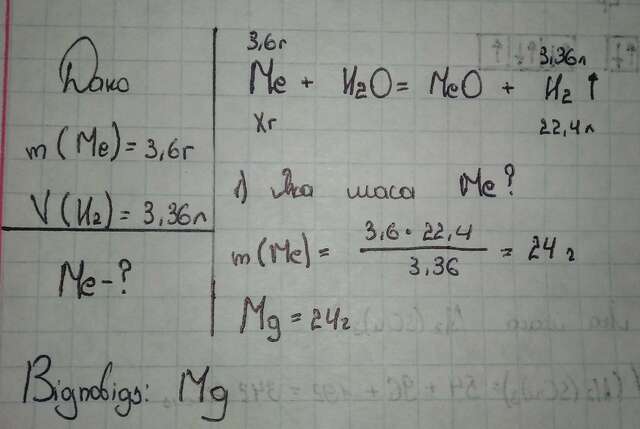 Дано
m (Me) = 3,6г
V (H₂) = 3,36л
Me - ?
3,6г 3,36л
Me + H₂O = MeO + H₂ ↑
Xг 22,4л
1) Яка маса Me?
m (Me) = 3,6 · 22,4 / 3,36 = 24 г
Mg = 24г
Відповідь: Mg